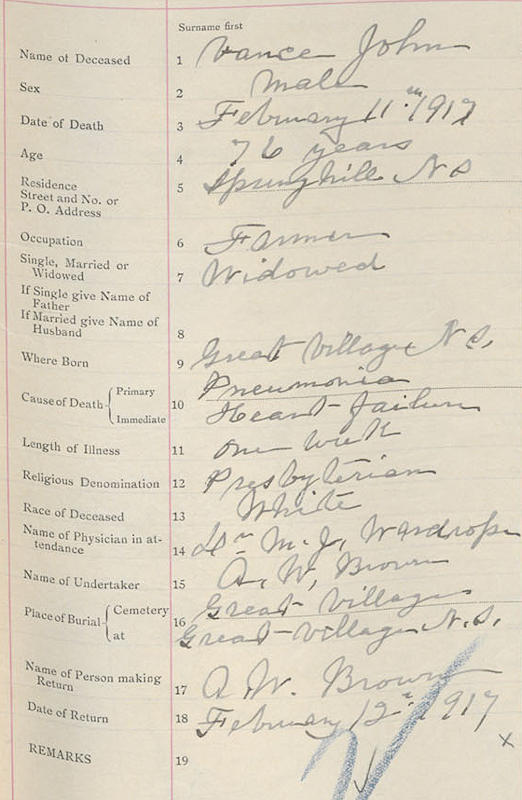 Surname first
Name of Deceased 1 Vance John
Sex 2 Male
Date of Death 3 February 11th 1917
Age 4 76 years
Residence
Street and No. or
P. O. Address 5 Springhill N S
Occupation 6 Farmer
Single, Married or
Widowed 7 Widowed
If Single give Name of
Father
If Married give Name of
Husband 8
Where Born 9 Great Village N S.
Cause of Death { Primary Pneumonia
10
Immediate Heart failure
Length of Illness 11 one week
Religious Denomination 12 Presbyterian
Race of Deceased 13 White
Name of Physician in at-
tendance 14 Dr M. J. Wardrope
Name of Undertaker 15 A. W. Brown
Place of Burial { Cemetery 16 Great Village
at Great Village N. S.
Name of Person making
Return 17 A W. Brown
Date of Return 18 February 12th 1917
REMARKS 19
x